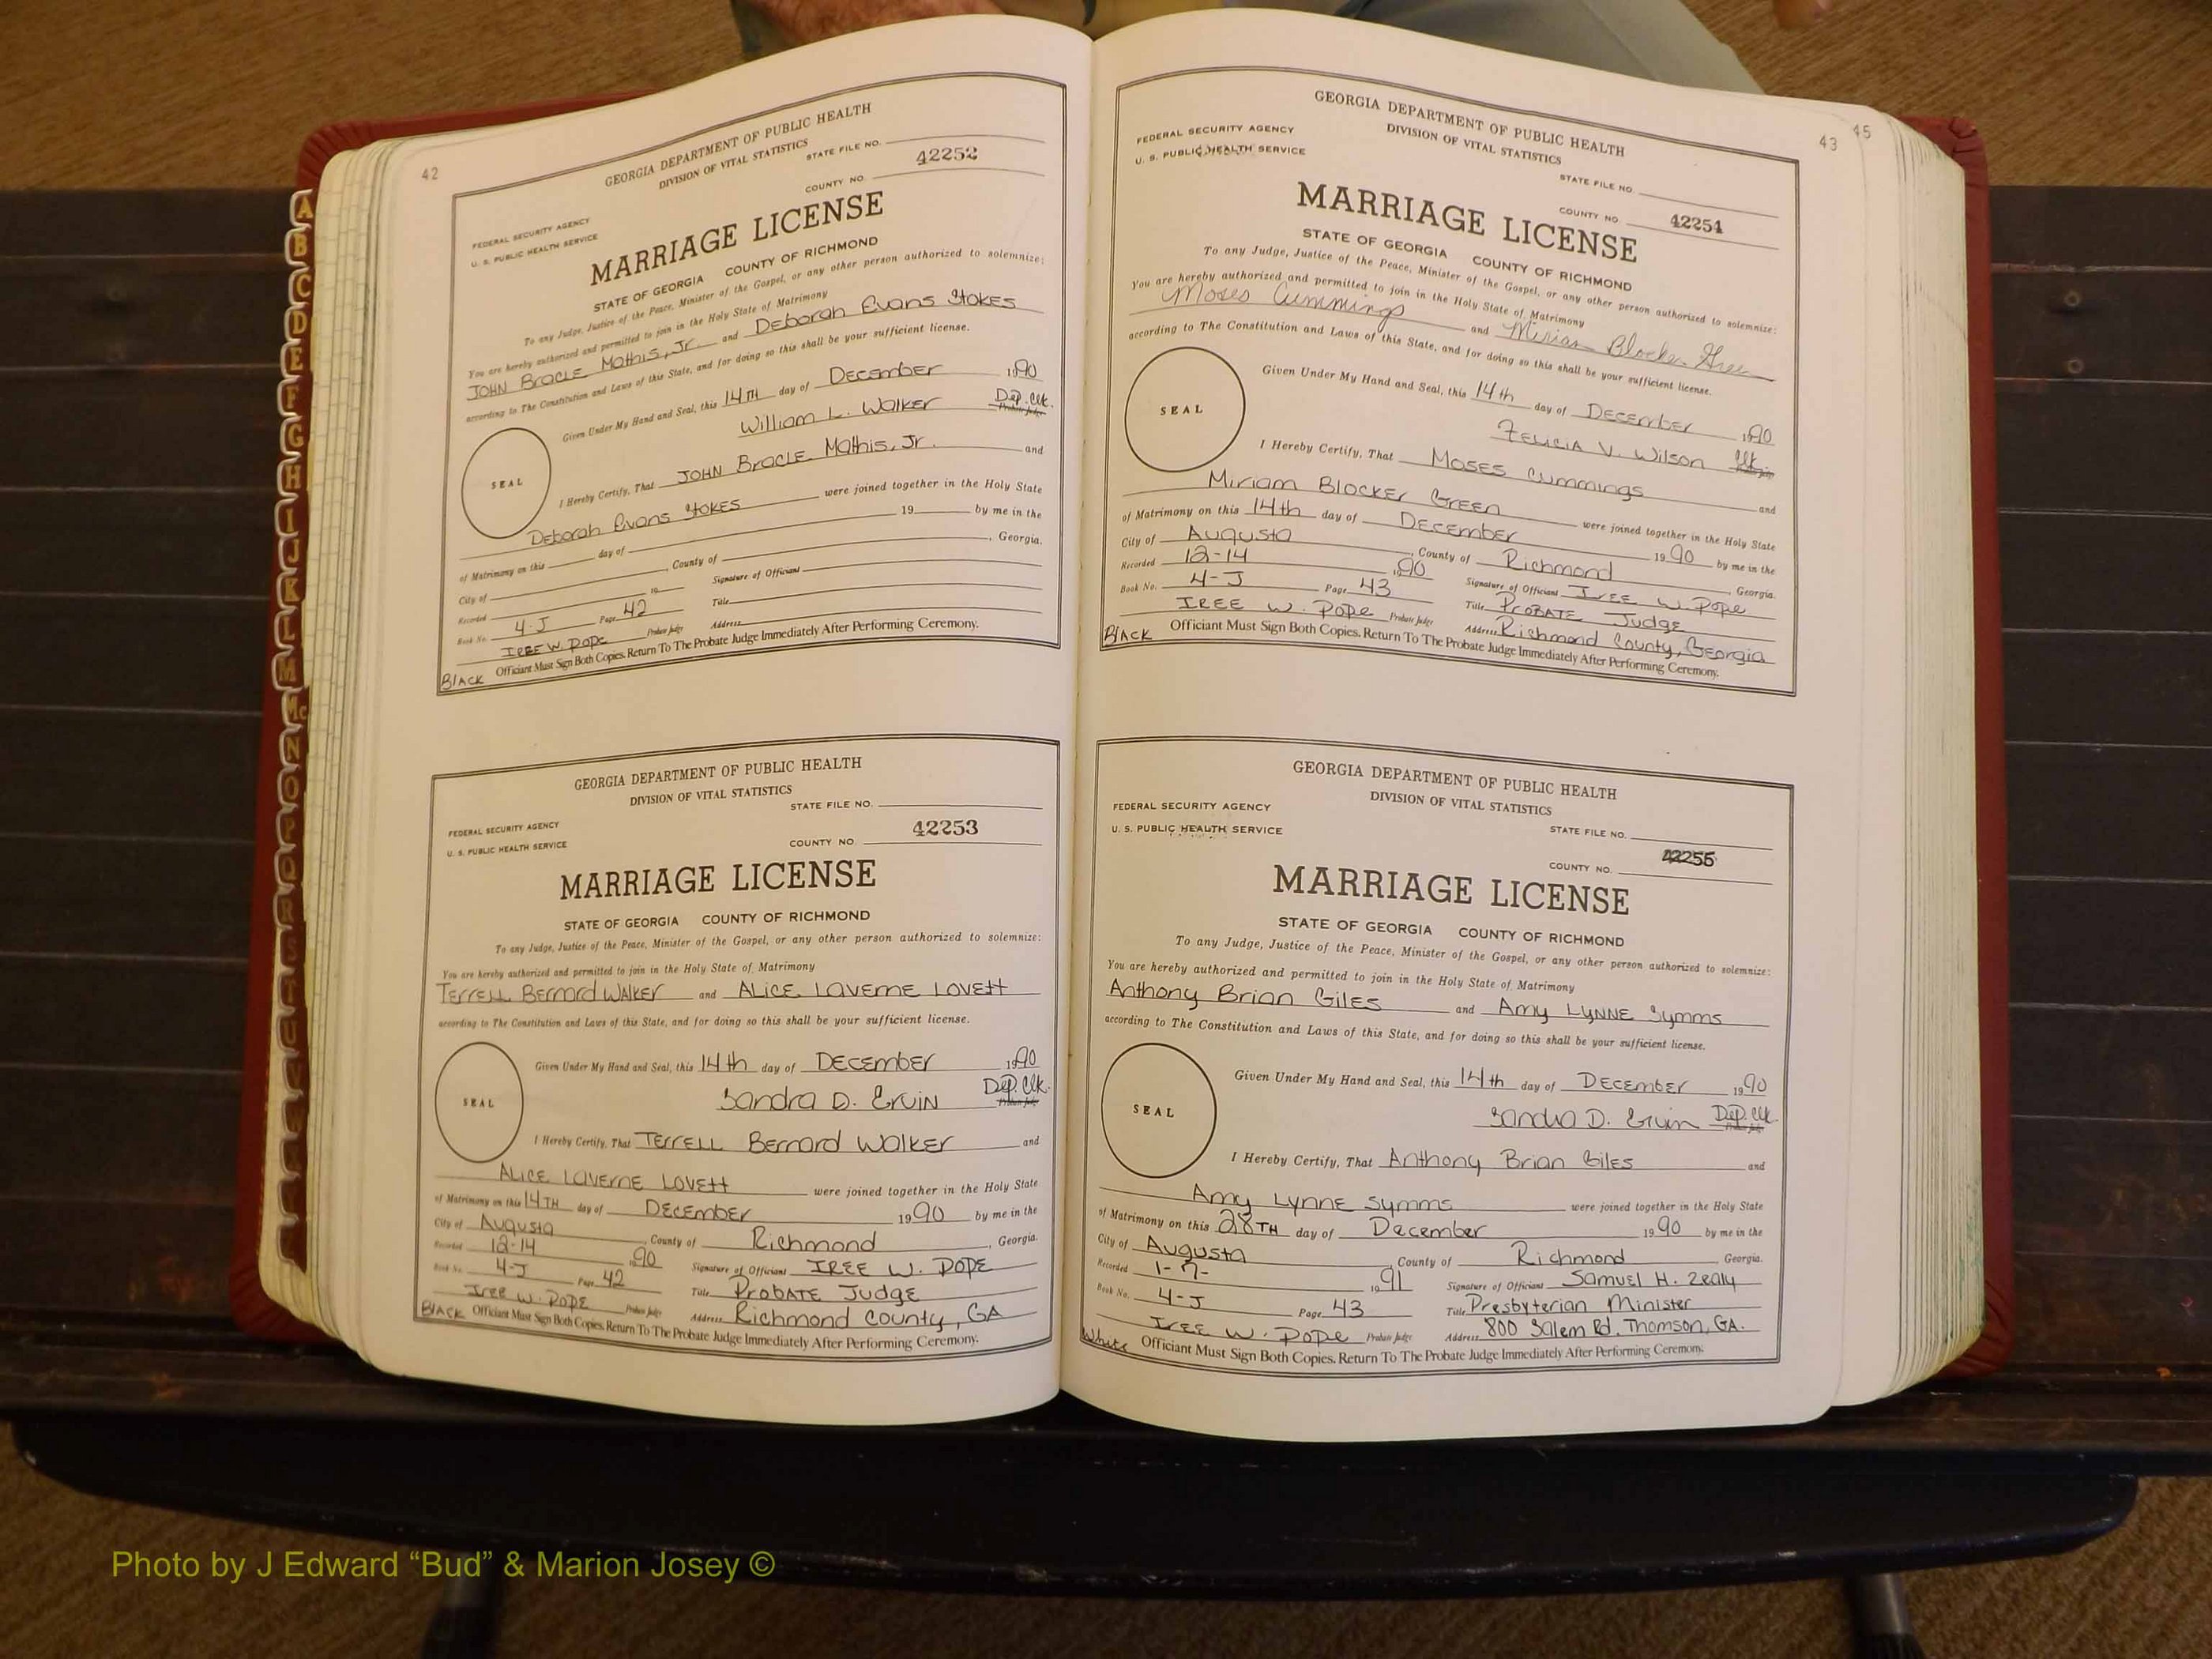 42
GEORGIA DEPARTMENT OF PUBLIC HEALTH
DIVISION OF VITAL STATISTICS
STATE FILE NO.
42252
COUNTY NO.
FEDERAL SECURITY AGENCY
U. S. PUBLIC HEALTH SERVICE
MARRIAGE LICENSE
STATE OF GEORGIA COUNTY OF RICHMOND
To any Judge, Justice of the Peace, Minister of the Gospel, or any other person authorized to solemnize:
You are hereby authorized and permitted to join in the Holy State of Matrimony
JOHN BracLE Mathis, Jr. and Deborah Evans Stokes
according to The Constitution and Laws of this State, and for doing so this shall be your sufficient license.
Given Under My Hand and Seal, this 14TH day of December 1990
William L. Walker Dep. Clk.
Probate Judge
SEAL
I Hereby Certify, That JOHN BracLE Mathis, Jr. and
Deborah Evans Stokes were joined together in the Holy State
of Matrimony on this day of 19 by me in the
City of County of , Georgia.
Recorded 19 Signature of Officiant
Book No. 4-J Page 42 Title
IREE W. Pope Probate Judge Address
BLACK Officiant Must Sign Both Copies. Return To The Probate Judge Immediately After Performing Ceremony.
GEORGIA DEPARTMENT OF PUBLIC HEALTH
DIVISION OF VITAL STATISTICS
STATE FILE NO.
FEDERAL SECURITY AGENCY
42253
U. S. PUBLIC HEALTH SERVICE
COUNTY NO.
MARRIAGE LICENSE
STATE OF GEORGIA COUNTY OF RICHMOND
To any Judge, Justice of the Peace, Minister of the Gospel, or any other person authorized to solemnize:
You are hereby authorized and permitted to join in the Holy State of Matrimony
Terrell Bernard Walker and Alice Laverne Lovett
according to The Constitution and Laws of this State, and for doing so this shall be your sufficient license.
Given Under My Hand and Seal, this 14th day of December 1990
Sandra D. Ervin Dep. Clk.
Probate Judge
SEAL
I Hereby Certify, That Terrell Bernard Walker and
Alice Laverne Lovett were joined together in the Holy State
of Matrimony on this 14TH day of December 1990 by me in the
City of Augusta County of Richmond , Georgia.
Recorded 12-14 1990 Signature of Officiant IREE W. POPE
Book No. 4-J Page 42 Title Probate Judge
Iree W. Pope Probate Judge Address Richmond County, GA
BLACK Officiant Must Sign Both Copies. Return To The Probate Judge Immediately After Performing Ceremony.
43 45
GEORGIA DEPARTMENT OF PUBLIC HEALTH
DIVISION OF VITAL STATISTICS
FEDERAL SECURITY AGENCY
U. S. PUBLIC HEALTH SERVICE
STATE FILE NO.
COUNTY NO. 42254
MARRIAGE LICENSE
STATE OF GEORGIA COUNTY OF RICHMOND
To any Judge, Justice of the Peace, Minister of the Gospel, or any other person authorized to solemnize:
You are hereby authorized and permitted to join in the Holy State of Matrimony
Moses Cummings and Miriam Blocker Green
according to The Constitution and Laws of this State, and for doing so this shall be your sufficient license.
Given Under My Hand and Seal, this 14th day of December 1990
Felicia V. Wilson Clk
SEAL
I Hereby Certify, That Moses Cummings and
Miriam Blocker Green were joined together in the Holy State
of Matrimony on this 14th day of December 1990 by me in the
City of Augusta County of Richmond , Georgia.
Recorded 12-14 1990 Signature of Officiant Iree W. Pope
Book No. 4-J Page 43 Title Probate Judge
IREE W. Pope Probate Judge Address Richmond County, Georgia
BLACK Officiant Must Sign Both Copies. Return To The Probate Judge Immediately After Performing Ceremony.
GEORGIA DEPARTMENT OF PUBLIC HEALTH
DIVISION OF VITAL STATISTICS
FEDERAL SECURITY AGENCY
U. S. PUBLIC HEALTH SERVICE
STATE FILE NO.
COUNTY NO. 42255
MARRIAGE LICENSE
STATE OF GEORGIA COUNTY OF RICHMOND
To any Judge, Justice of the Peace, Minister of the Gospel, or any other person authorized to solemnize:
You are hereby authorized and permitted to join in the Holy State of Matrimony
Anthony Brian Giles and Amy Lynne Symms
according to The Constitution and Laws of this State, and for doing so this shall be your sufficient license.
Given Under My Hand and Seal, this 14th day of December 1990
Sandra D. Ervin Dep. Clk.
SEAL
I Hereby Certify, That Anthony Brian Giles and
Amy Lynne Symms were joined together in the Holy State
of Matrimony on this 28TH day of December 1990 by me in the
City of Augusta County of Richmond , Georgia.
Recorded 1-7- 1991 Signature of Officiant Samuel H. Zealy
Book No. 4-J Page 43 Title Presbyterian Minister
Iree W. Pope Probate Judge Address 800 Salem Rd. Thomson, GA.
White Officiant Must Sign Both Copies. Return To The Probate Judge Immediately After Performing Ceremony.
A
B
C
D
E
F
G
H
I
J
K
L
M
Mc
N
O
P
Q
R
S
T
U
V
W
Photo by J Edward “Bud” & Marion Josey ©